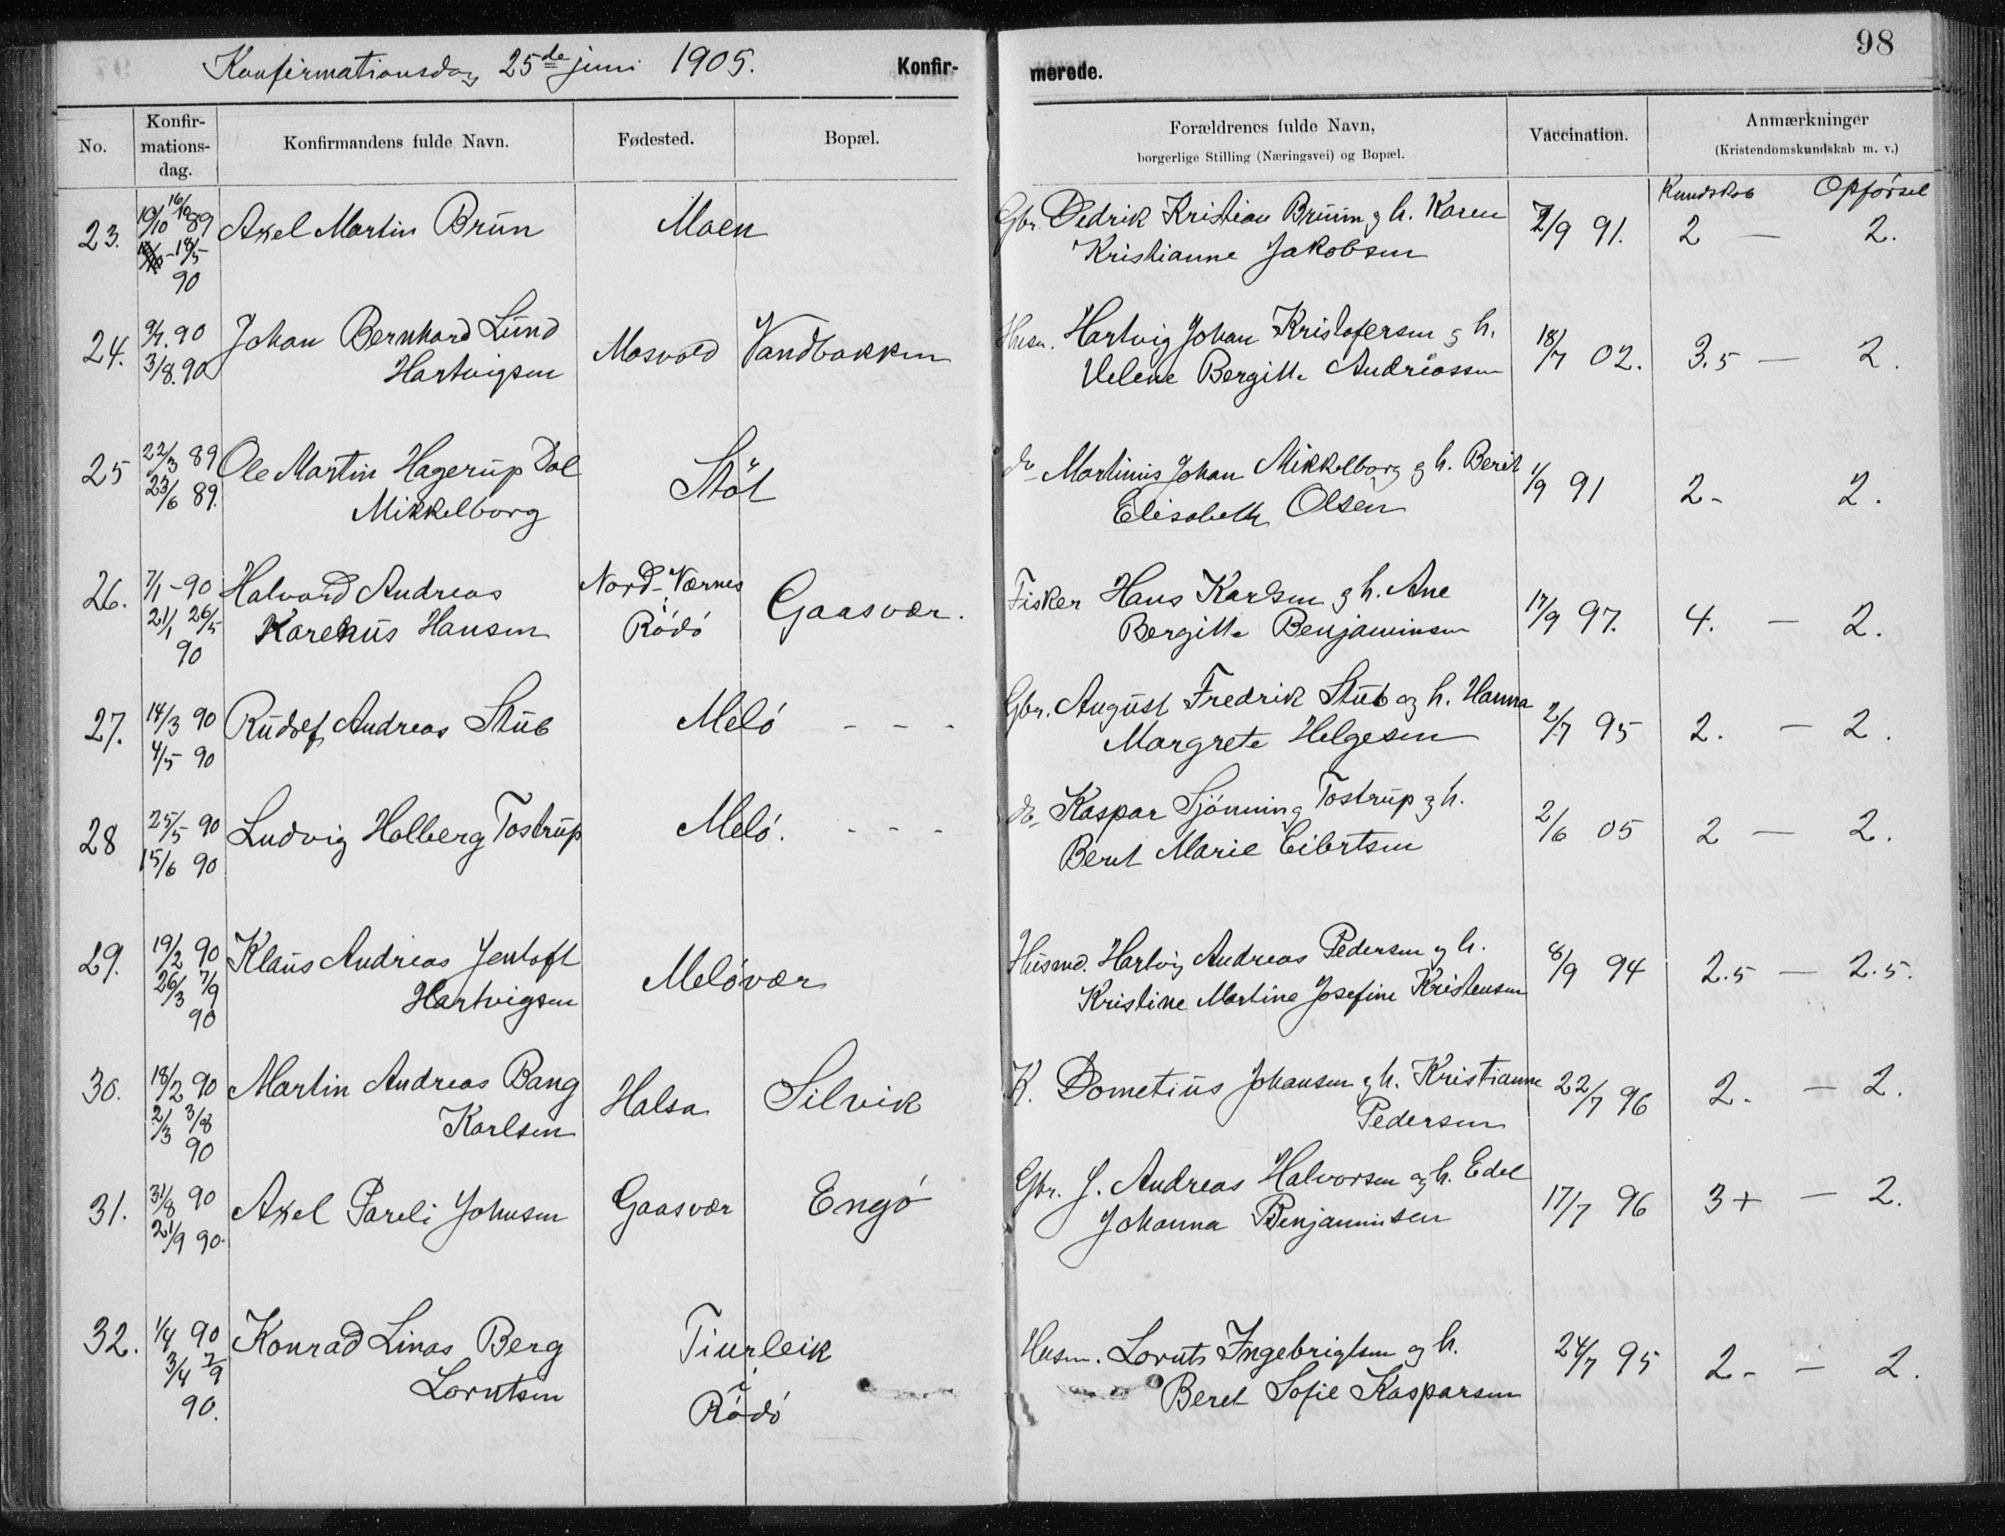 Konfirmationsdag 25de juni 1905. Konfir- merede. 98
No. Konfir-mations-dag. Konfirmandens fulde Navn. Fødested. Bopæl. Forældrenes fulde Navn, borgerlige Stilling (Næringsvei) og Bopæl. Vaccination. Anmærkninger (Kristendomskundskab m. v.)
Kundskab Opførsel
23. 10/10 89 Axel Martin Brun Moen Gbr. Dedrik Kristian Bruun g h. Karen 2/9 91. 2 — 2.
18/5 90 Kristianne Jakobsen
24. 9/7. 90 Johan Bernhard Lund Mosvold Vandbakken Husm. Hartvig Johan Kristofersen g h. 18/7 02. 3.5 — 2.
3/8. 90 Hartvigsen Velene Bergitte Andreassen
25 22/3 89 Ole Martin Hagerup Dal Støt do Martinus Johan Mikkelborg g h. Berit 1/9 91 2- 2.
23/6 89. Mikkelborg Elisabeth Olsen
26. 7/1-90 Halvard Andreas Nord-Værnes Gaasvær. Fisker Hans Karlsen g h. Ane 17/9 97. 4. — 2.
21/1 26/5 90 Karenus Hansen Rödö Bergitte Benjaminsen
27. 14/3 90 Rudolf Andreas Stub Melö - - - Gbr. August Fredrik Stub og h. Hanna 2/7 95 2. — 2.
4/5 90 Margrete Helgesen
28 25/5 90 Ludvig Holberg Tostrup Melö. - - - do Kaspar Sjönning Tostrup g h. 2/6 05 2 — 2.
15/6 90 Beret Marie Eilertsen
29. 19/2 90 Klaus Andreas Jentoft Melövær Husmd. Hartvig Andreas Pedersen g h. 8/9 94 2.5 — 2.5.
26/3 7/9 90 Hartvigsen Kristine Martine Josefine Kristensen
30. 18/2 90 Martin Andreas Bang Halsa Silvik K. Dometius Johansen g h. Kristianne 22/7 96 2. — 2.
2/3 3/8 90 Karlsen Pedersen
31. 31/8 90 Axel Pareli Johnsen Gaasvær Engö Gbr. J. Andreas Halvorsen og h. Edel 17/7 96 3+ — 2.
21/9 90. Johanna Benjaminsen
32. 1/4 90 Konrad Linas Berg Tiurleik Husm. Lornts Ingebrigtsen og h. 24/7 95 2- — 2.
3/4 7/9 90. Lorntsen i Rödö Beret Sofie Kasparsen